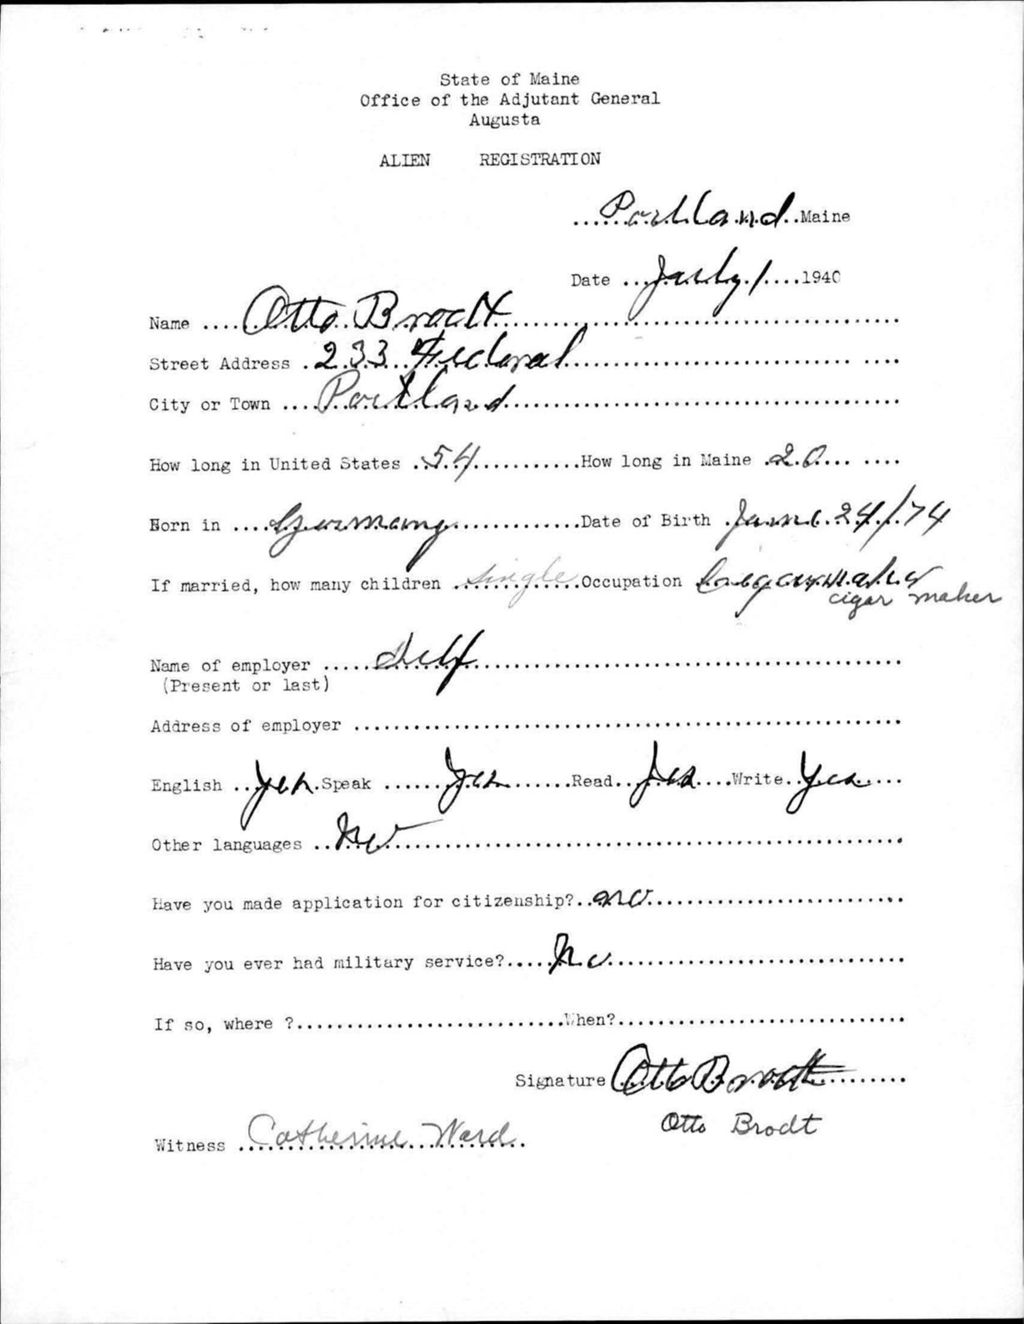 State of Maine
Office of the Adjutant General
Augusta
ALIEN REGISTRATION
Portland Maine
Date July 1 1940
Name Otto Brodt
Street Address 233 Federal
City or Town Portland
How long in United States 54 How long in Maine 20
Born in Germany Date of Birth June 24/74
If married, how many children single Occupation Cigarmaker
cigar maker
Name of employer Self
(Present or last)
Address of employer
English Yes Speak Yes Read Yes Write Yes
Other languages No
Have you made application for citizenship? no
Have you ever had military service? No
If so, where ? When?
Signature Otto Brodt
Otto Brodt
Witness Catherine Ward